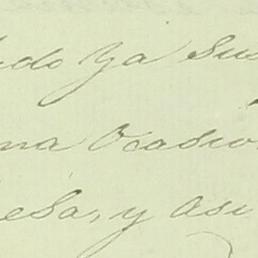 ido ya sus
na Ocasio
esa, y asi